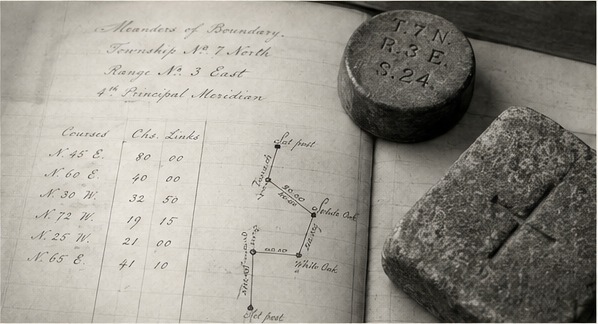 Meanders of Boundary.
Township No. 7 North
Range No. 3 East
4th Principal Meridian
Courses Chs. Links
N. 45 E. 80 00
N. 60 E. 40 00
N. 30 W. 32 50
N. 72 W. 19 15
N. 25 W. 21 00
N. 65 E. 41 10
post
Oak
White Oak
post
T. 7 N.
R. 3 E.
S. 24.